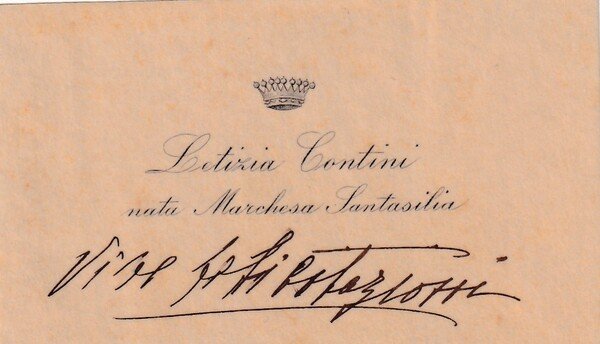 Letizia Contini
nata Marchesa Santasilia
Vive felicitazioni